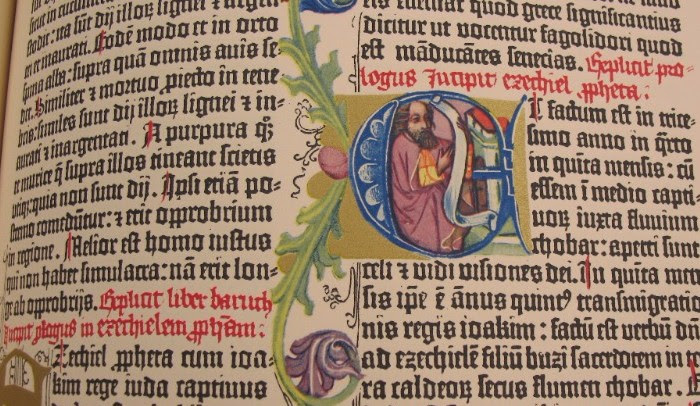 stodit: ita sūt dij illoꝝ lignei ⁊ argē
tei et inaurati. Eodē modo et in orto
spina alba: supra quā omnis auis se-
dit. Similiter ⁊ mortuo ꝓiecto in tene-
bris: similes sunt dij illoꝝ lignei ⁊ in-
aurati ⁊ inargentati. A purpura qꝫ
et murice ꝙ supra illos tineant scietis
utiqꝫ: quia non sunt dij. Ipsi etiā po-
stremo comedūtur: ⁊ erit opprobrium
in regione. Melior est homo iustus
qui non habet simulacra: nā erit lon-
ge ab opprobrijs. Explicit liber baruch
Incipit ꝓlogus in ezechielem ꝓphetam.
zechiel ꝓpheta cum ioa-
kim rege iuda captiuus
eis suscitat quod grece significantius
dicitur ut vocentur fagolidori quod
est māducātes senecias. Explicit pro-
logus Incipit ezechiel ꝓpheta.
Et factum est in trice-
simo anno in q̄rto
in quīta mensis: cū
essem ī medio capti-
uoꝝ iuxta fluuium
chobar: aperti sunt
celi ⁊ vidi visiones dei. In quīta mē-
sis ip̄e ē ānus quintꝰ transmigratio-
nis regis ioakim: factū est verbū dn̄i
ad ezechielē filiū buzi sacerdotem in
ra caldeoꝝ secus flumen chobar.